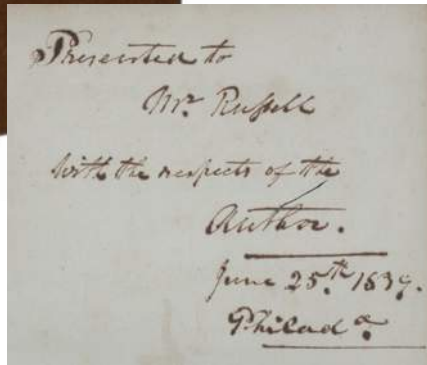 Presented to
Mr. Russell
with the respects of the
Author.
June 25.th 1839.
Philad a.